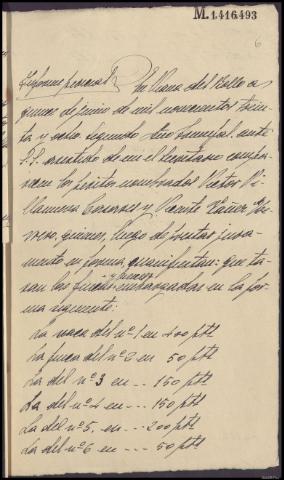 M.1.416.493
6
Informe pericial En Llana del Bollo a
quince de junio de mil novecientos trein-
ta y ocho segundo Año Triunfal. ante
S.S. asistido de mi el Secretario compa-
recen los peritos nombrados Victor Vi-
llanueva Casares y Vicente Yañez
quienes, luego de prestar jura-
mento en forma, manifiestan: que ta-
san las fincas embargadas en la for-
ma siguiente:
La vaca del nº 1 en 400 ptas
La finca del nº 2 en 50 ptas
La del nº 3 en --- 150 ptas
La del nº 4 en --- 150 ptas
La del nº 5. en --- 200 ptas
La del nº 6 en --- 50 ptas